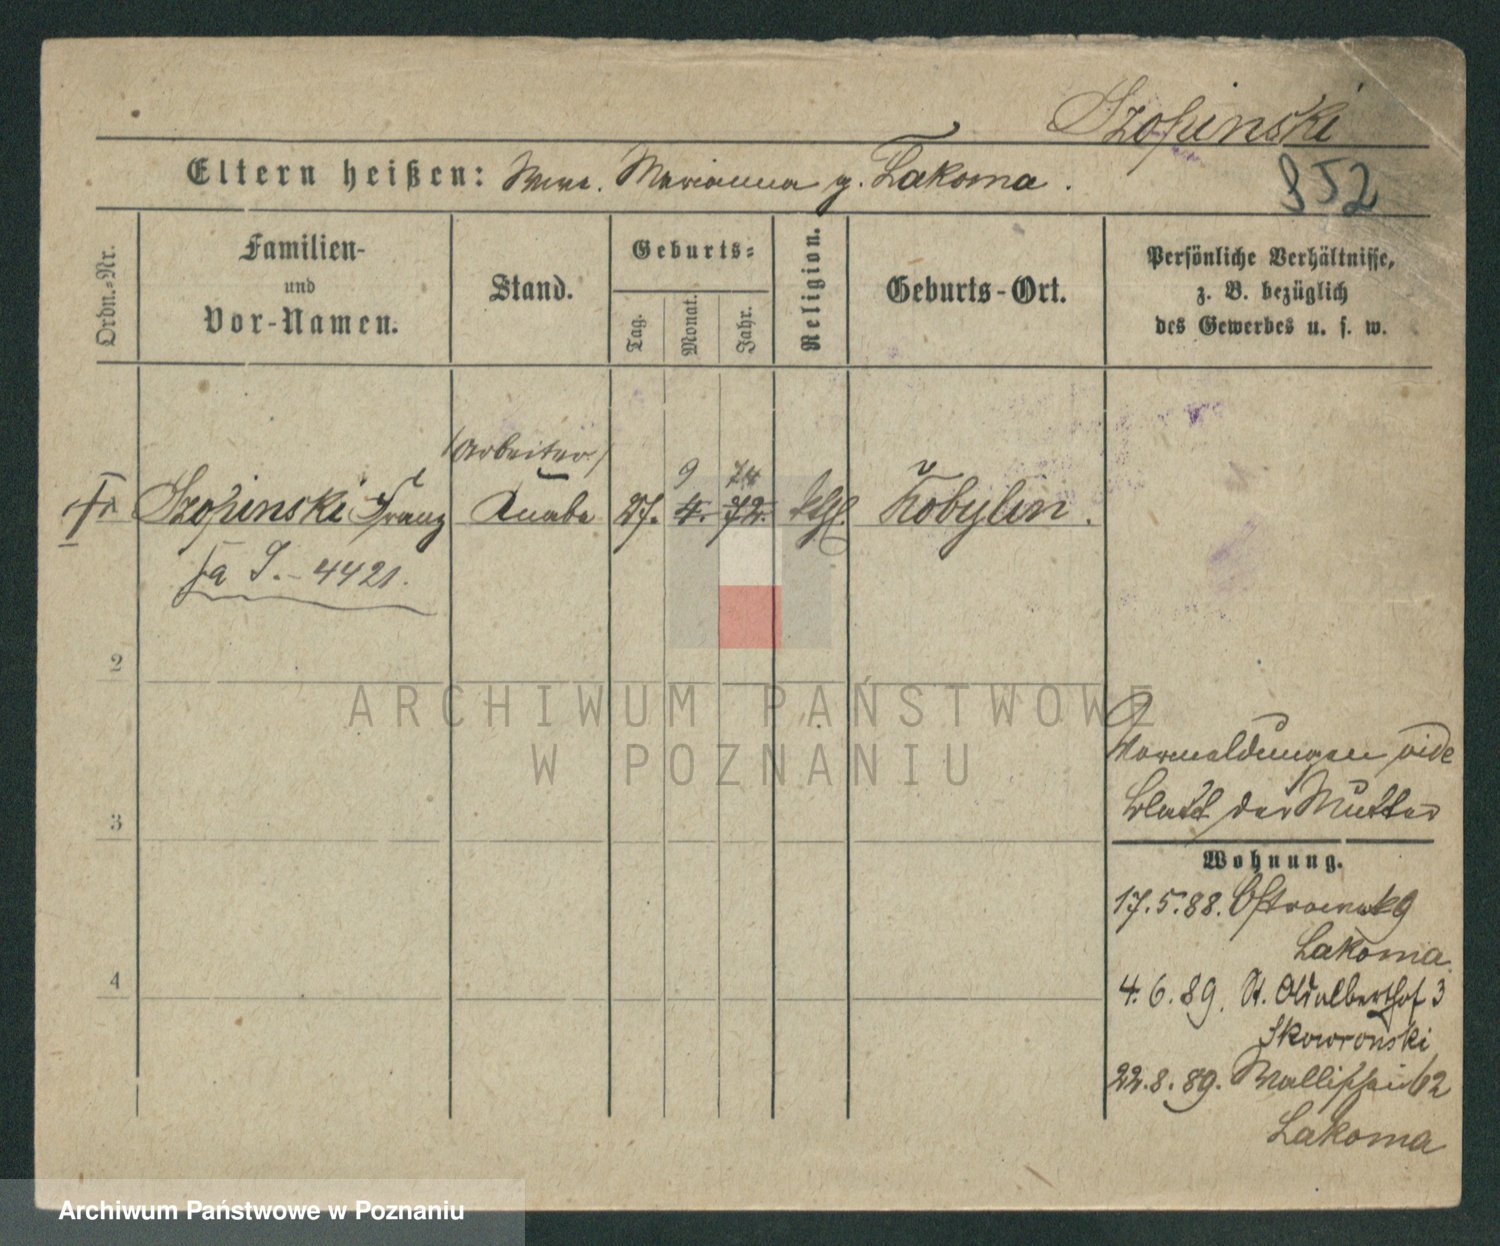 Szopinski
Eltern heißen: Wwe. Marianna g. Lakoma.
952
Ordn.-Nr.
Familien-
und
Vor-Namen.
Stand.
Geburts-
Tag.
Monat.
Jahr.
Religion.
Geburts-Ort.
Persönliche Verhältnisse,
z. B. bezüglich
des Gewerbes u. s. w.
(Arbeiter)
9 74
Szopinski Franz Knabe 27. 4. 72. kth. Kobylin.
J. - 4421.
2
3
4
Vormeldungen vide
Blatt der Mutter
Wohnung.
17.5.88. Ostrowek 9
Lakoma.
4.6.89. St. Adalberthof 3
Skowronski
22.8.89. Wallischei 62
Lakoma
ARCHIWUM PAŃSTWOWE
W POZNANIU
Archiwum Państwowe w Poznaniu